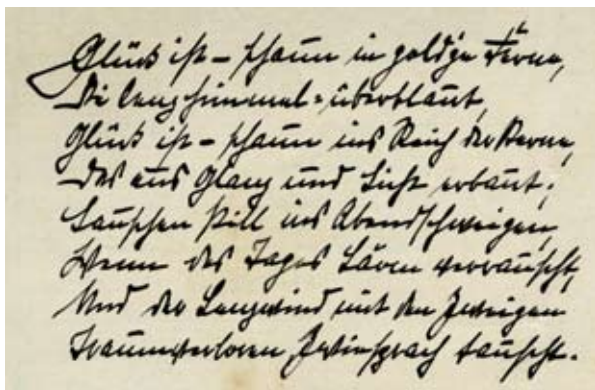 Glück ist – schaun in gold'ge Ferne,
Die lenzhimmel-überblaut,
Glück ist – schaun ins Reich der Sterne,
Das aus Glanz und Licht erbaut;
Lauschen still ins Abendschweigen,
Wenn des Tages Lärm verrauscht,
Und der Lenzwind mit den Zweigen
Traumverloren Zwiesprach tauscht.